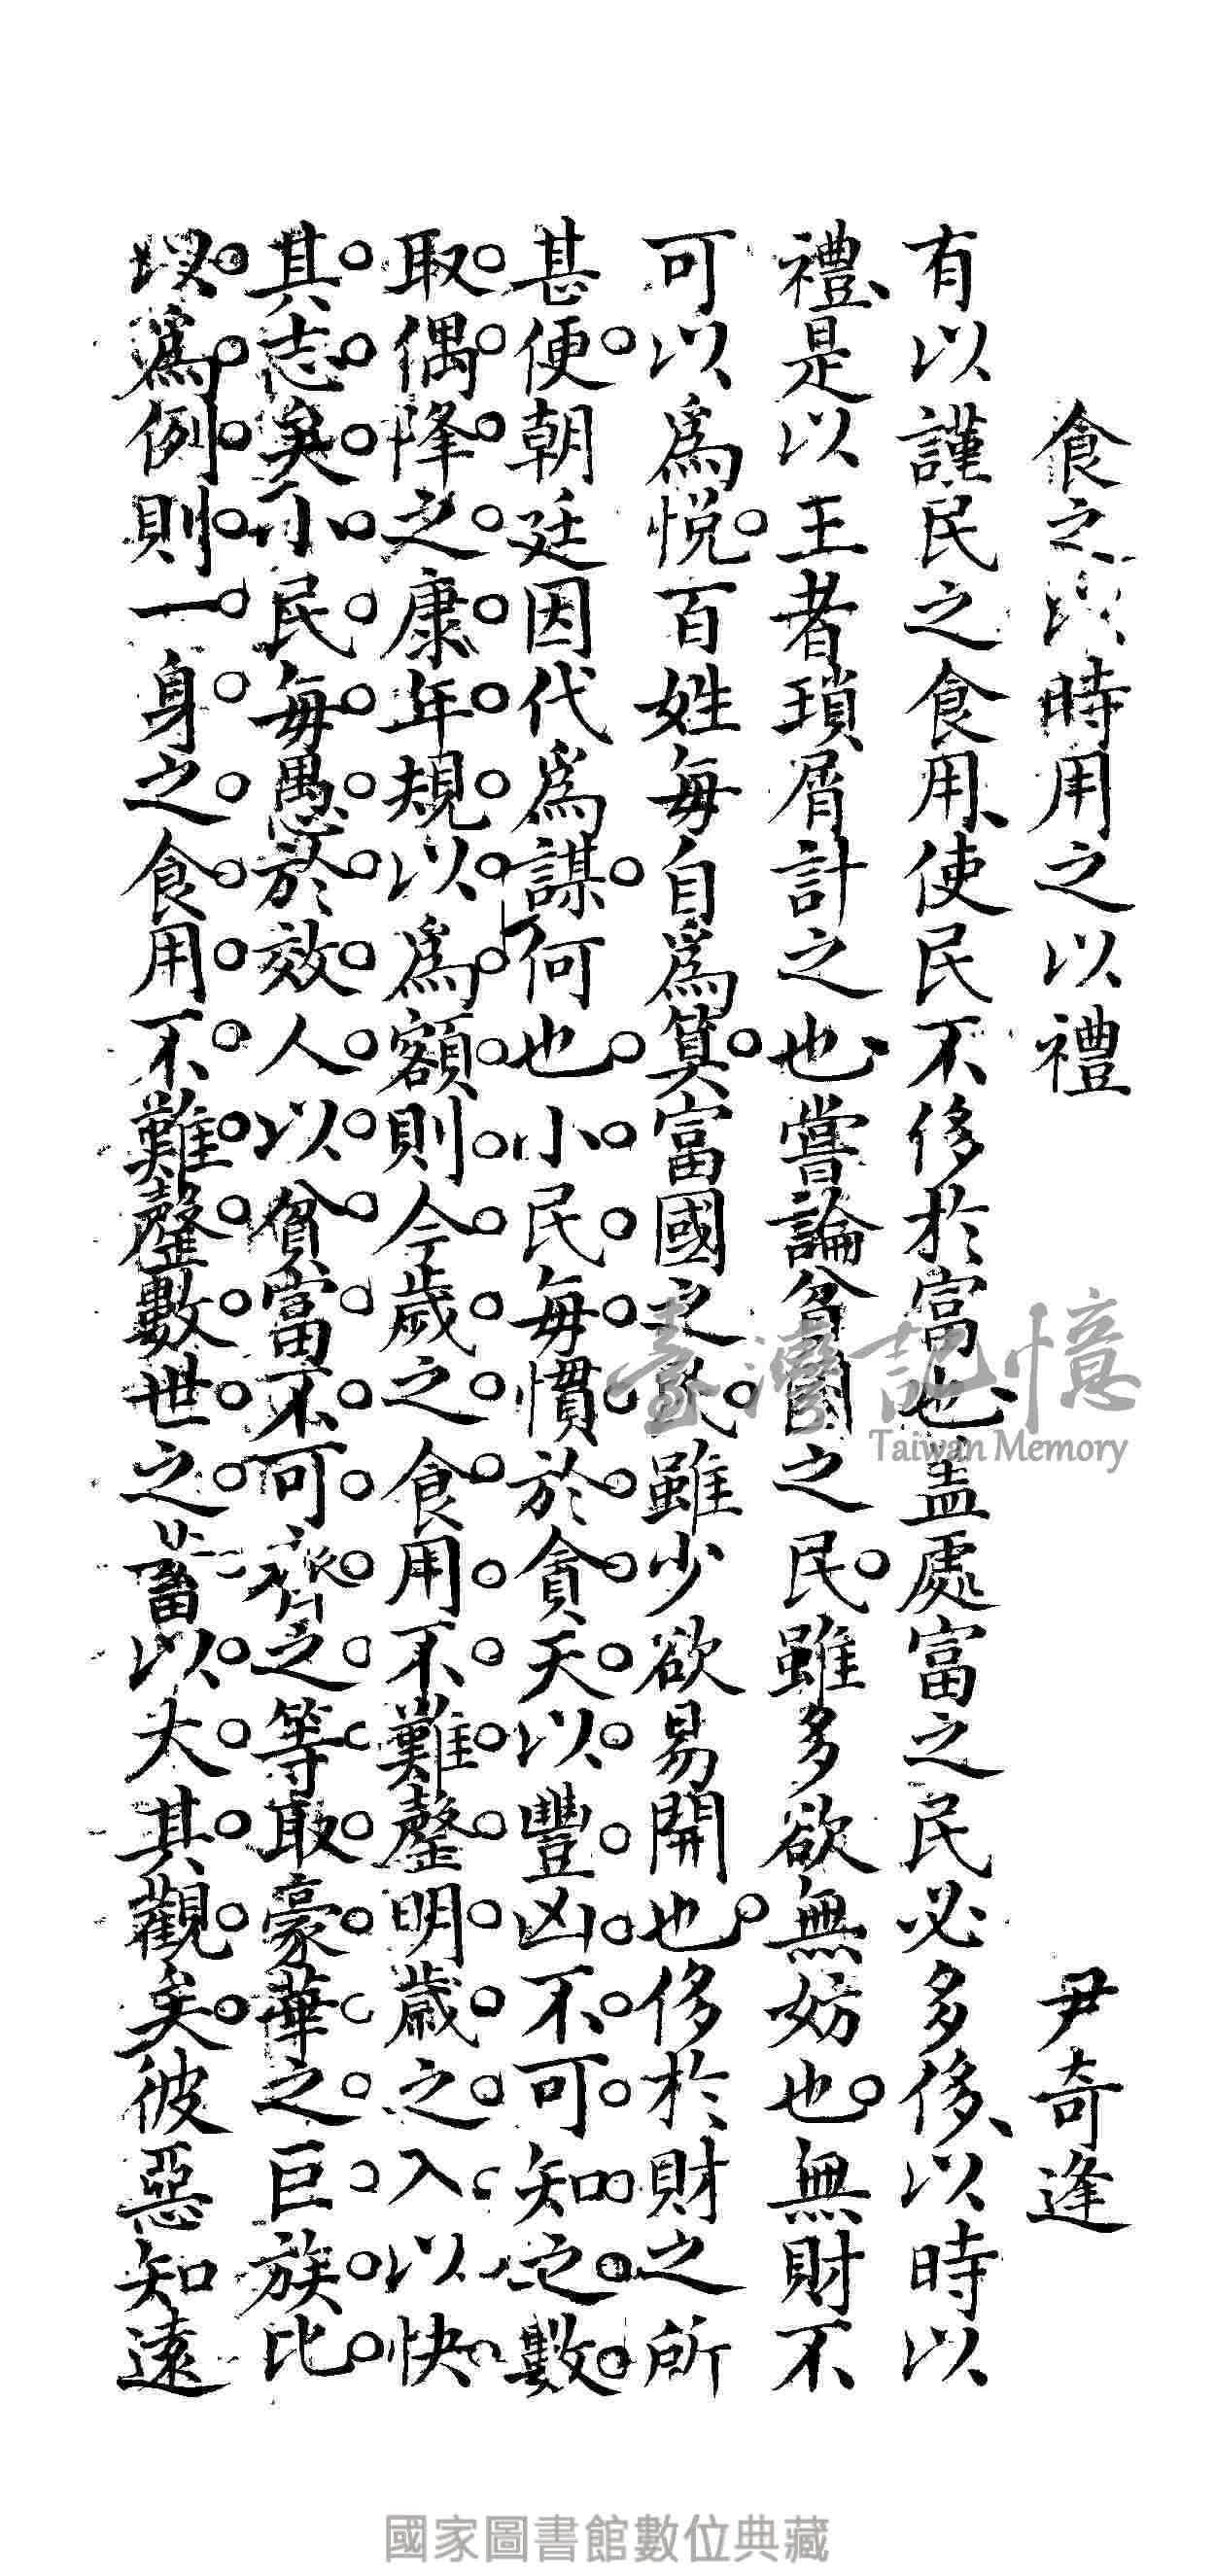 食之以時用之以禮　尹奇逢
有以謹民之食用、使民不侈於富也、盖處富之民必多侈、以時以
禮、是以王者瑣屑計之也、嘗論貧國之民。雖多欲無妨也。無財不
可以為悅。百姓每自為算。富國之民。雖少欲易開也。侈於財之所
甚便。朝廷因代為謀。何也。小。民。每。慣。於。貪。天。以。豐。凶。不。可。知。之。數。
取。偶。降。之。康。年。規。以。為。額。則。今。歲。之。食。用。不。難。罄。明。歲。之。入。以。快。
其。志。矣。小。民。每。愚。於。效。人。以。貧。富。不。可。齊。之。等。取。豪。華。之。巨。族。比。
以。為。例。則。一。身。之。食。用。不。難。罄。數。世。之。蓄。以。大。其。觀。矣。彼惡知遠
臺灣記憶
Taiwan Memory
國家圖書館數位典藏